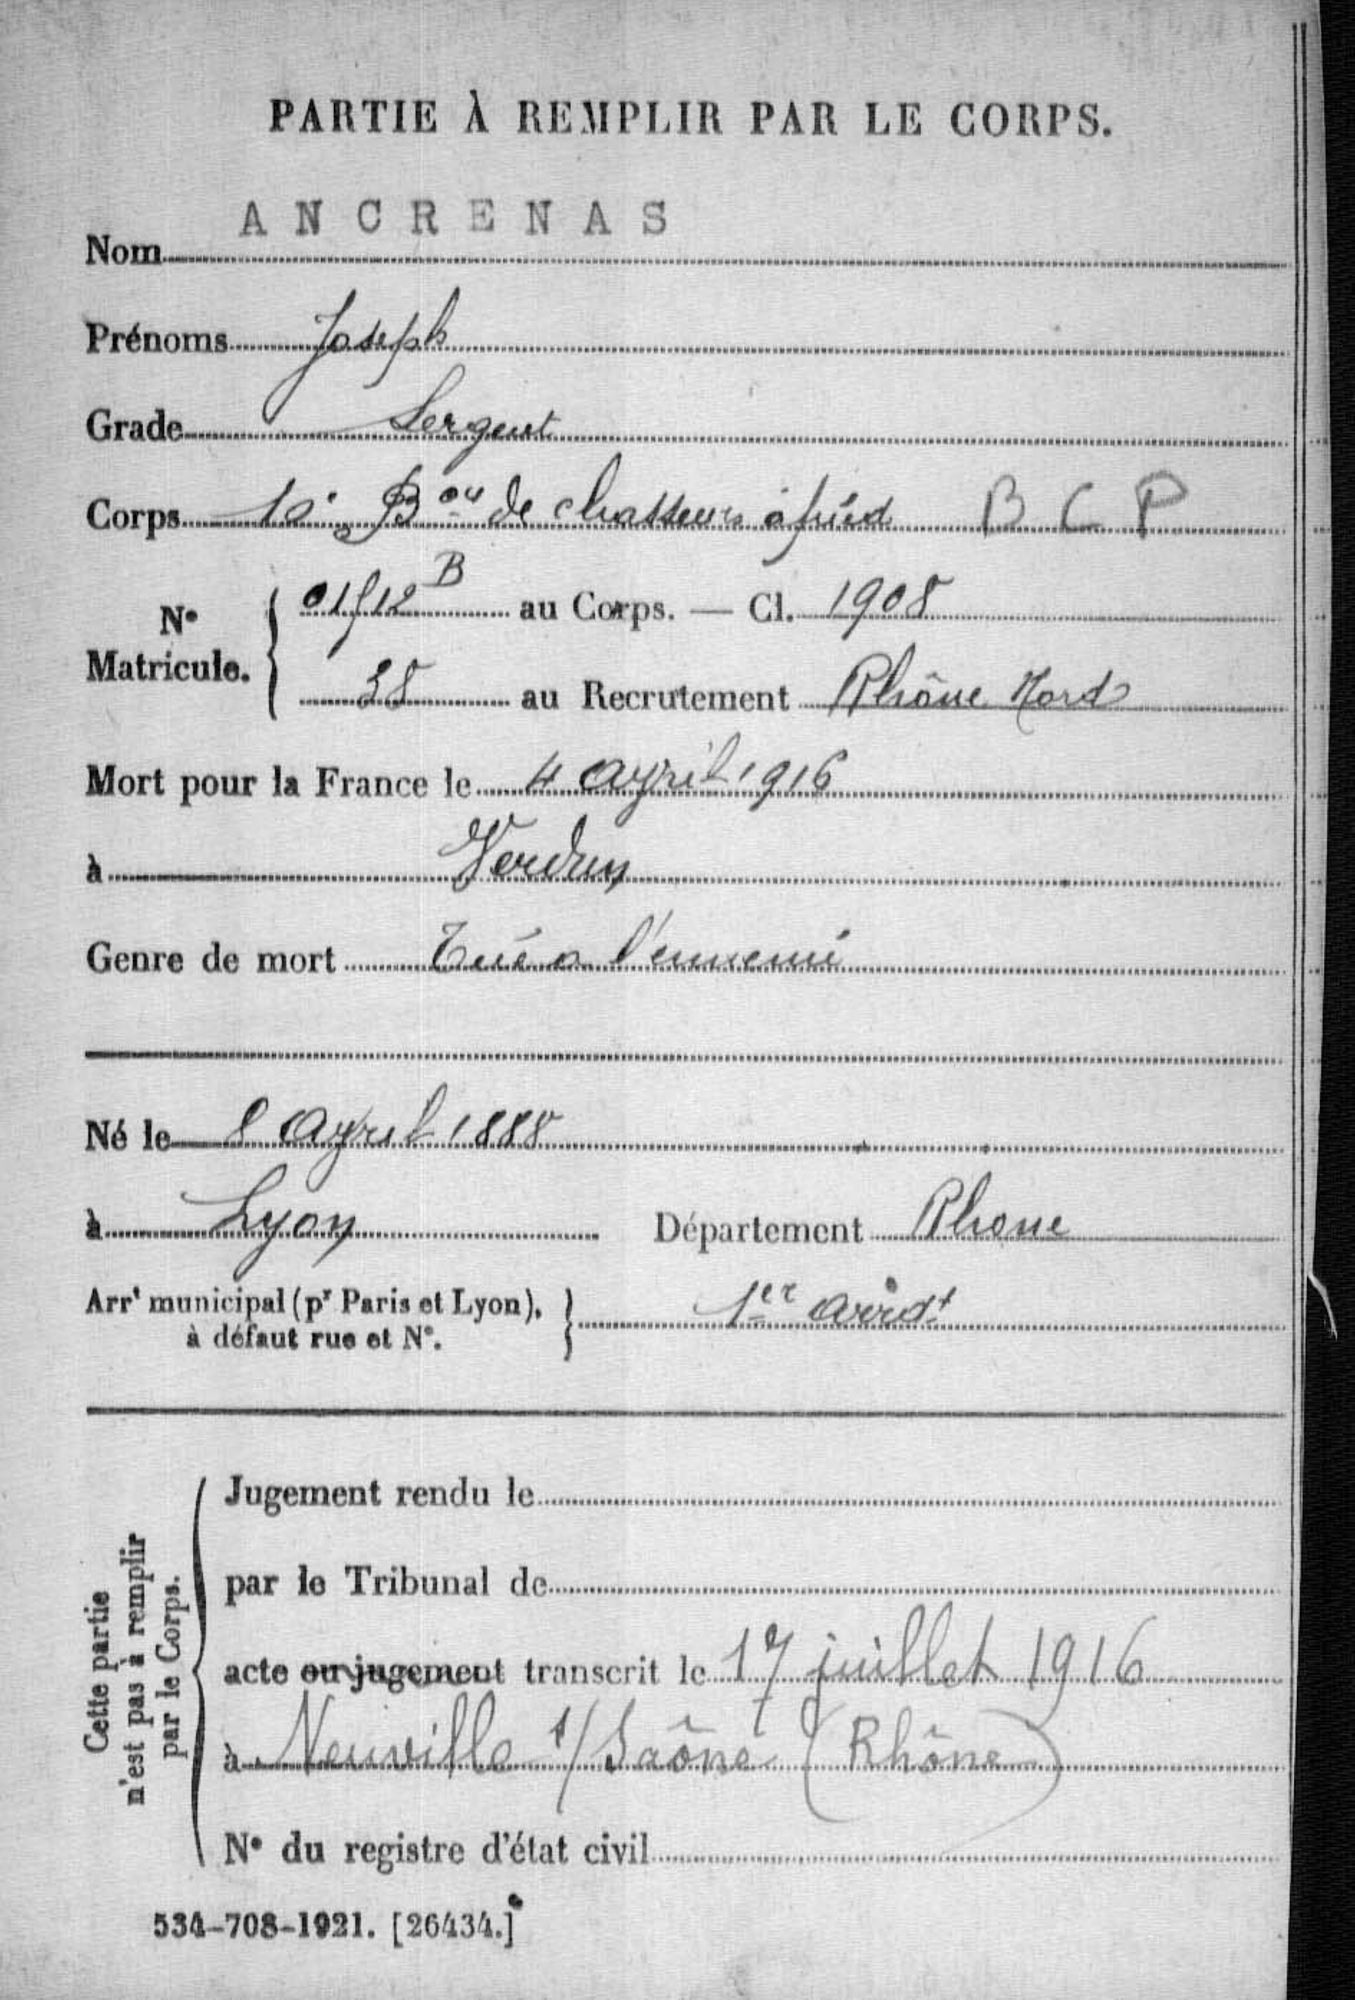 PARTIE À REMPLIR PAR LE CORPS.
Nom ANCRENAS
Prénoms Joseph
Grade Sergent
Corps Bon de chasseurs à pied B C P
No Matricule. B au Corps. — Cl. 1908
38 au Recrutement Rhône Nord
Mort pour la France le 4 Avril 1916
à Verdun
Genre de mort Tué a l'ennemi
Né le 8 Avril 1888
à Lyon Département Rhone
Arrt municipal (pr Paris et Lyon), à défaut rue et No. } 1er Arrdt
Cette partie n'est pas à remplir par le Corps.
Jugement rendu le
par le Tribunal de
acte ou jugement transcrit le 17 juillet 1916
à Neuville s/Saône (Rhône)
No du registre d'état civil
534-708-1921. [26434.]